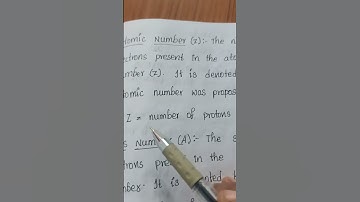 tomic Number (z):- The n
ctrons present in the ato
mber (z). It is denoted
tomic number was propos
Z = number of protons
s Number (A):- The s
trons present in the
mber. It is